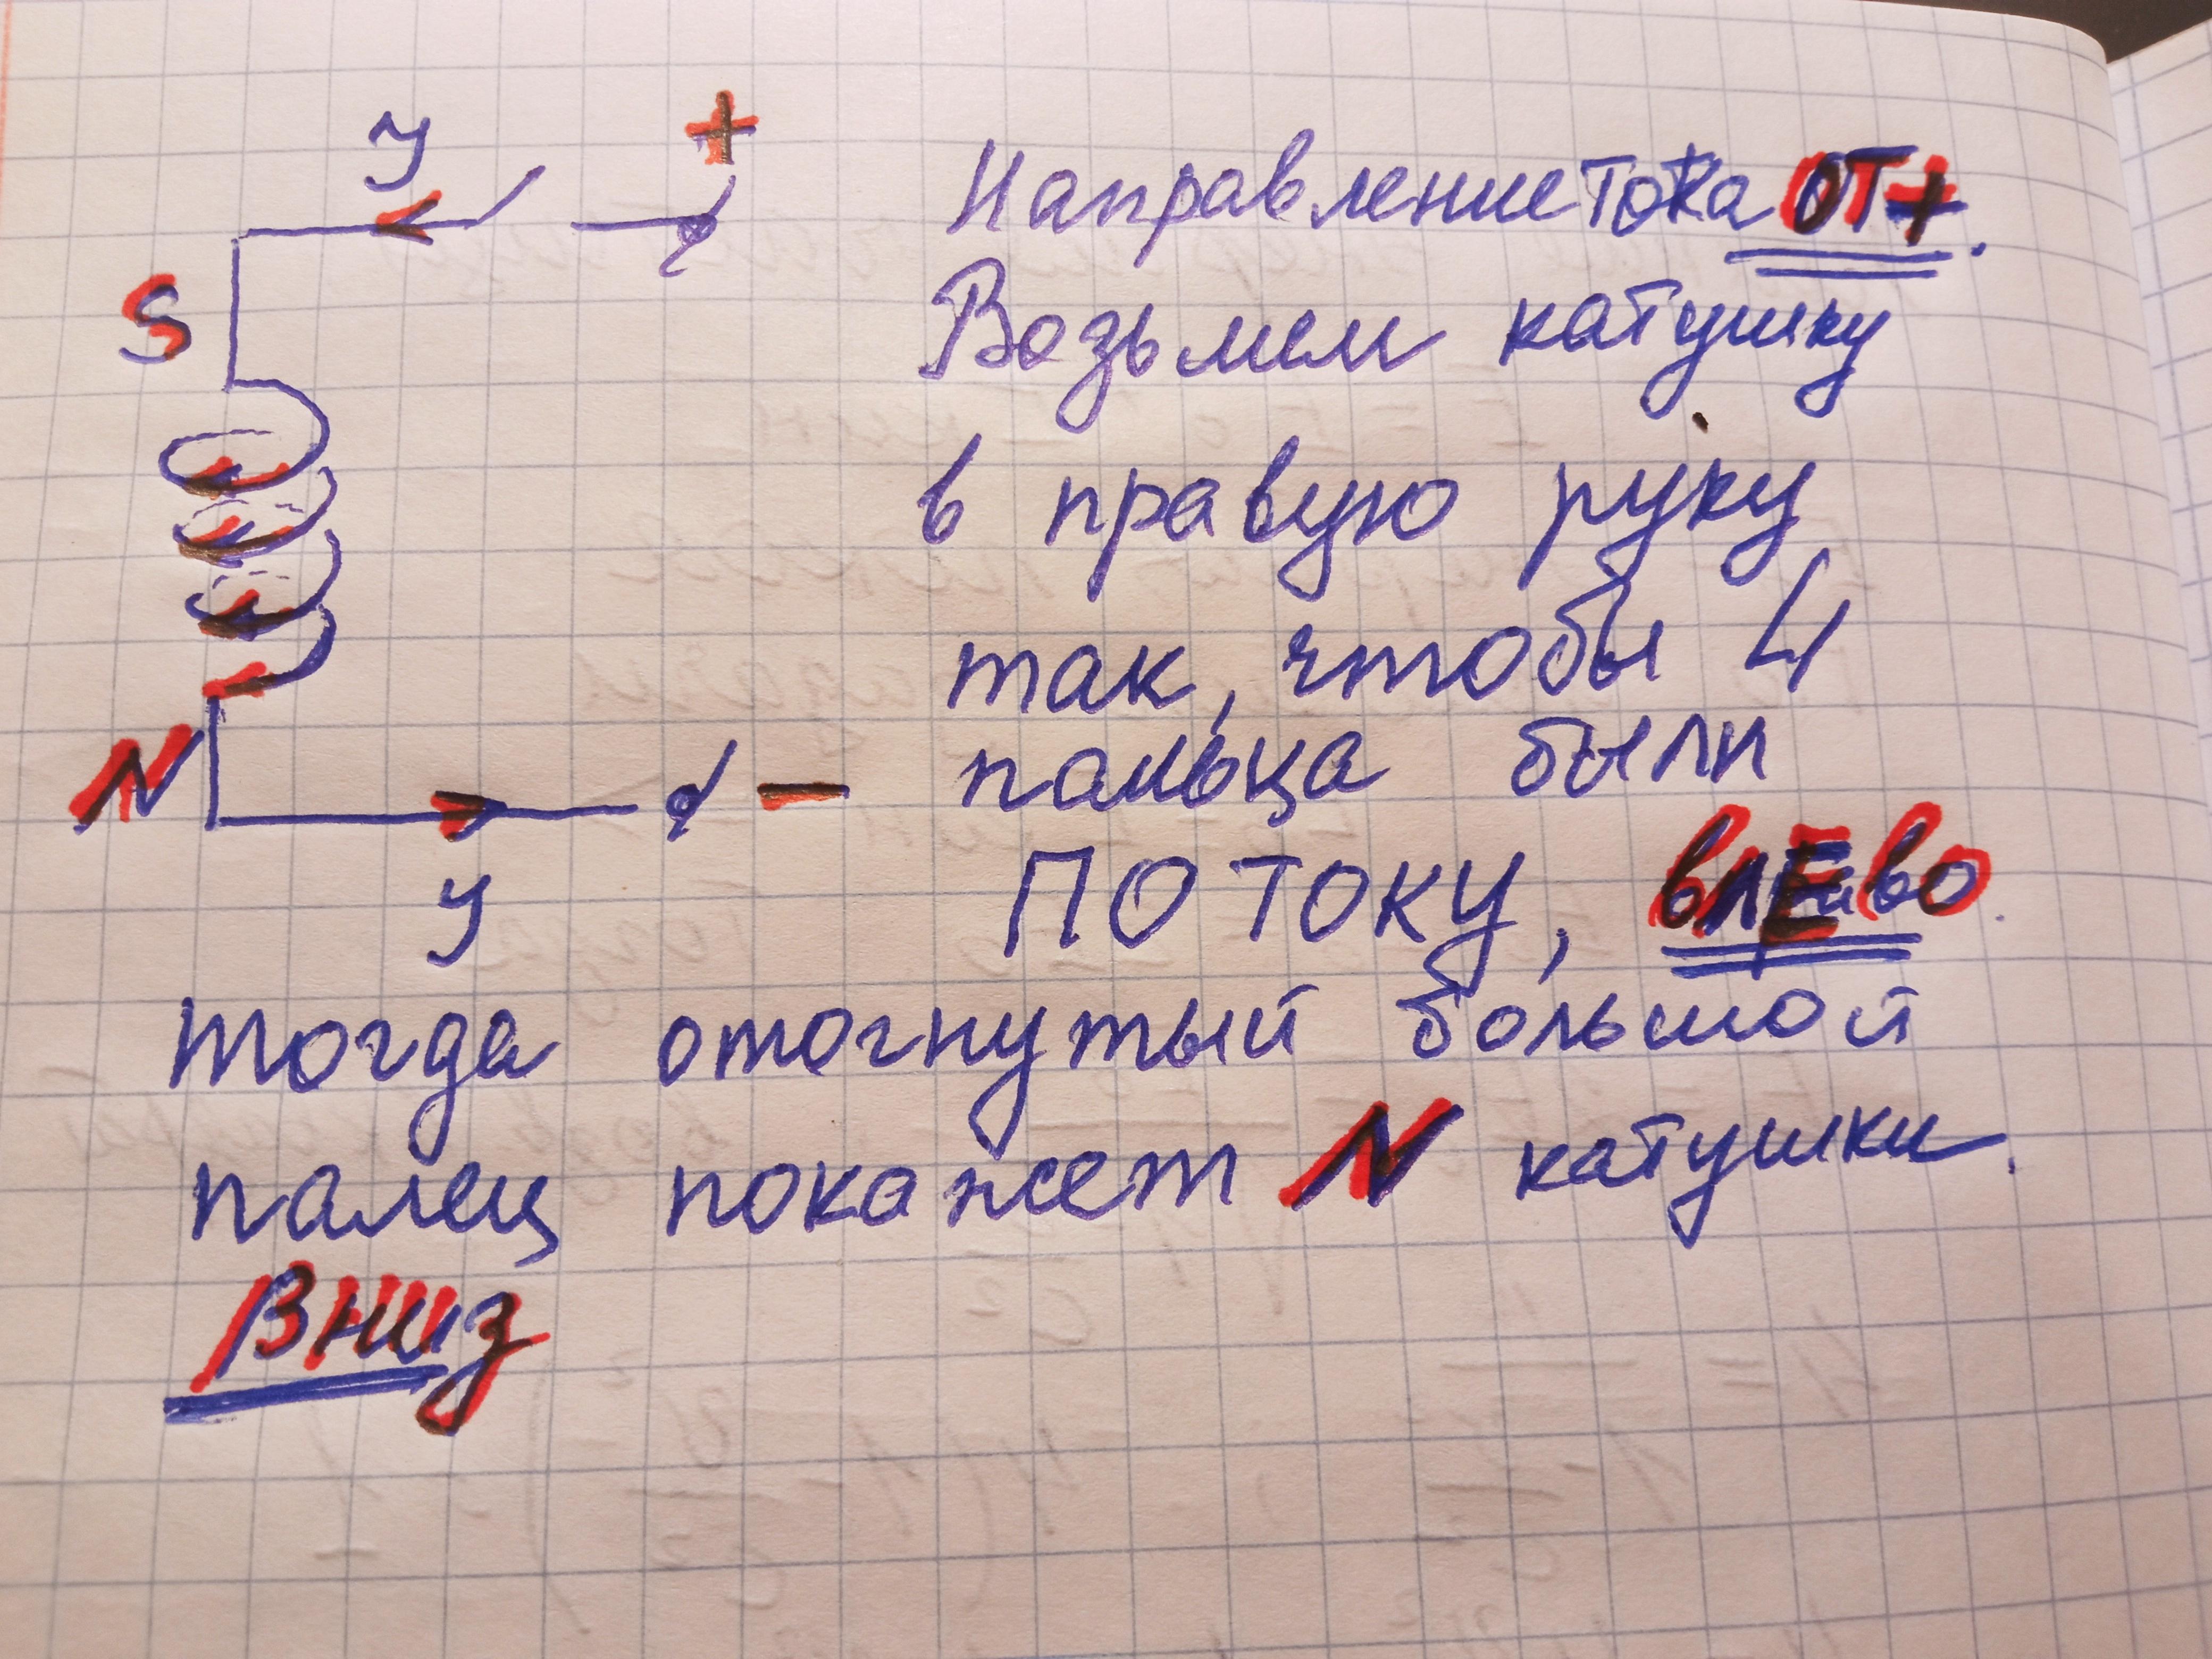 У +
Направление тока ОТ+.
S
Возьмем катушку
в правую руку
так, чтобы 4
N − пальца были
ПО ТОКУ, влЕво.
У
тогда отогнутый большой
палец покажет N катушки.
вниз